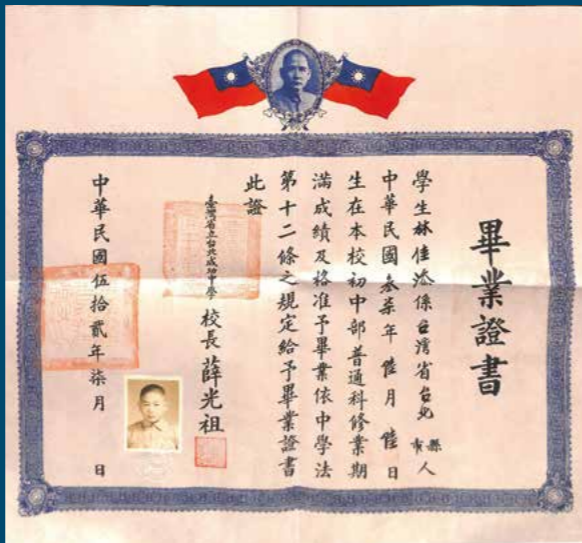 畢業證書
學生林佳添係台灣省台北縣市人
中華民國叁柒年陸月陸日
生在本校初中部普通科修業期
滿成績及格准予畢業依中學法
第十二條之規定給予畢業證書
此證
臺灣省立台北成功中學
校長薛光祖
中華民國伍拾貳年柒月 日